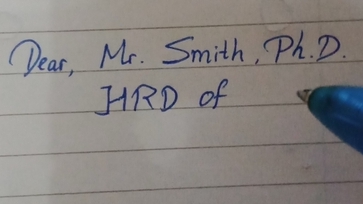 Dear, Mr. Smith, Ph.D.
HRD of